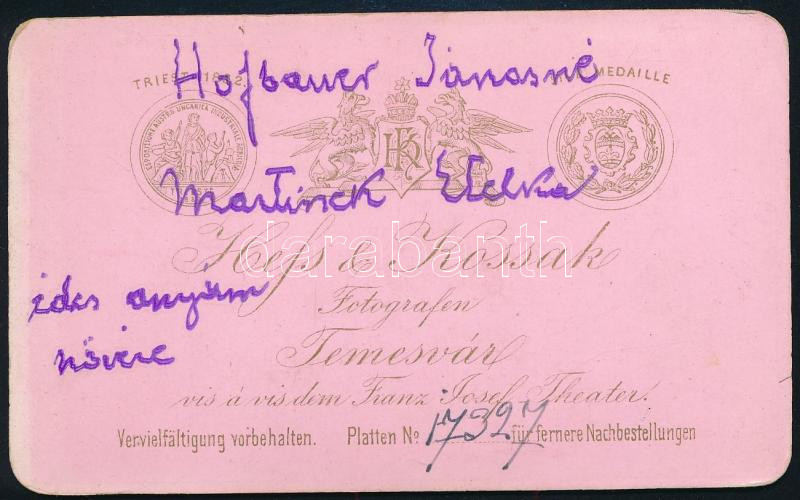 Hofbauer Jánosné
TRIEST 1882. MEDAILLE
HK
Martinek Etelka
Hefs & Kossak
darabanth
édes anyám
Fotografen
nővére
Temesvár
vis á vis dem Franz Josef Theater.
Vervielfältigung vorbehalten. Platten No 17327 für fernere Nachbestellungen